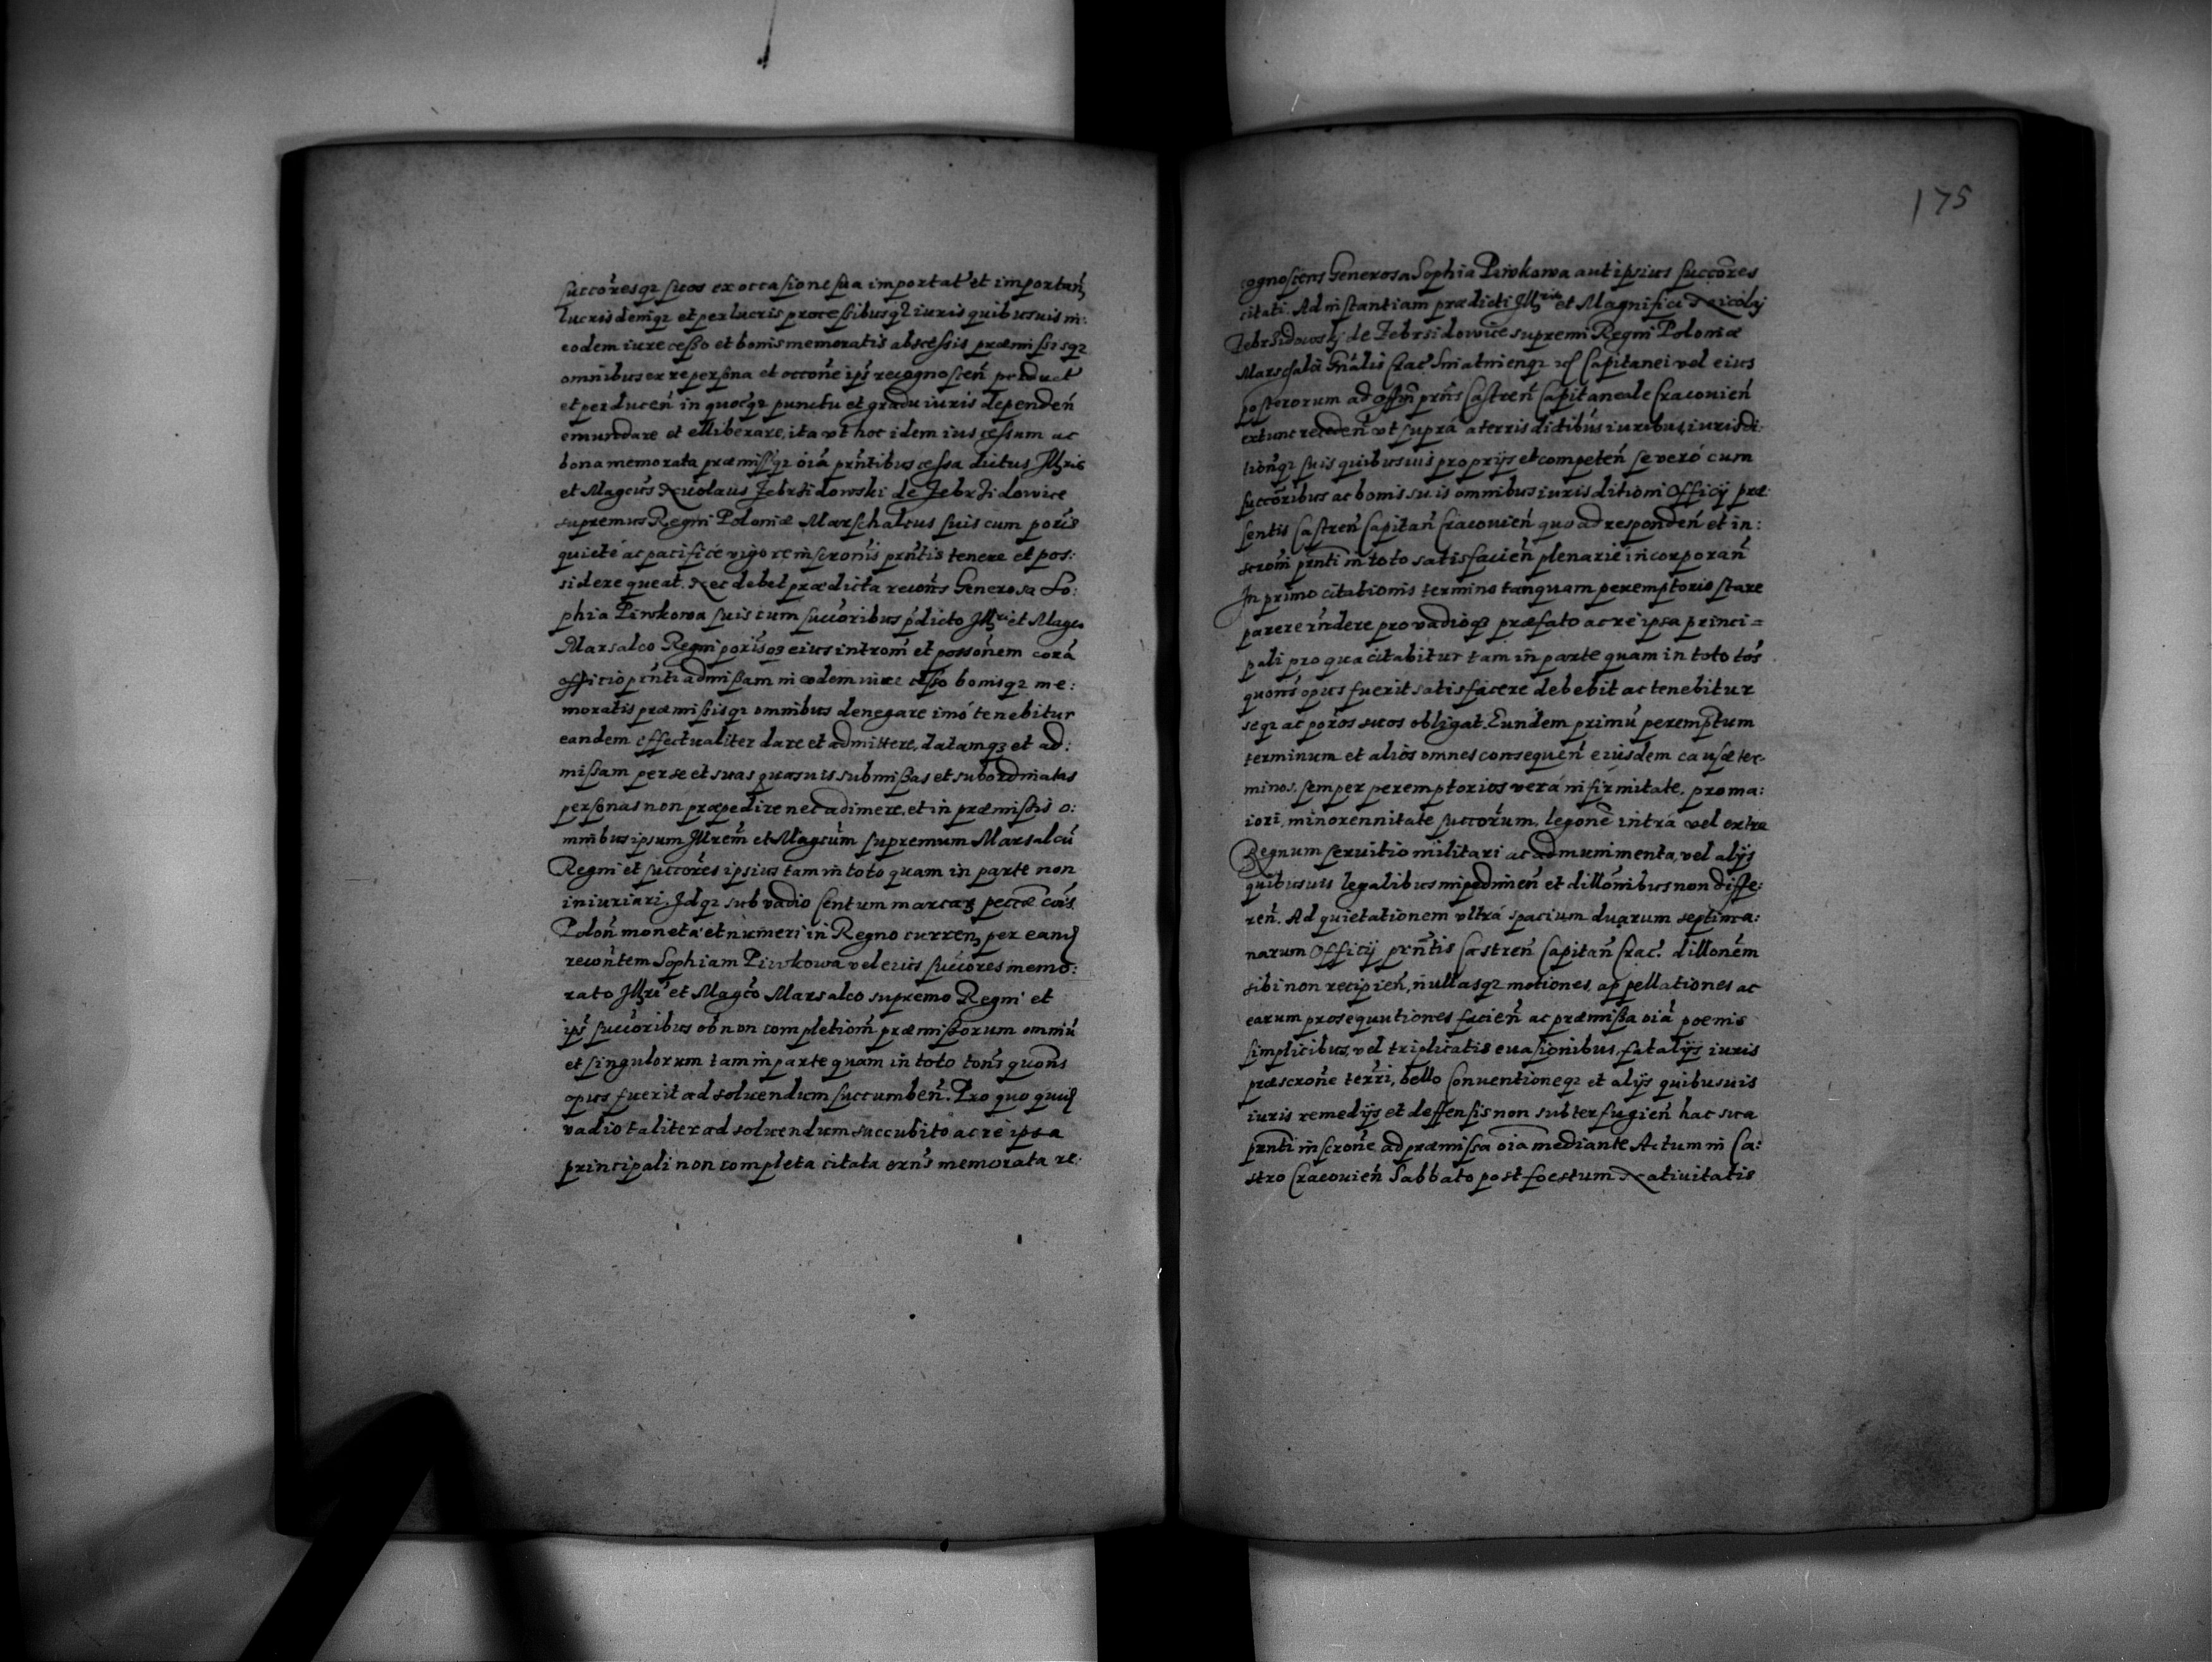 succoresq; suos ex occasione sua importat et importan
lucris demq; et perlucris processibusq; iuris quibusuis in:
eodem iure cesso et bonis memoratis abscessis præmissisq;
omnibus ex re persona et occone ips recognoscen product
et perducen in quocq; punctu et gradu iuris dependen
emundare et elliberare, ita vt hoc idem ius cessum ac
bona memorata præmissq; oia prntibus cessa dictus Illris
et Magcus Nicolaus Zebrzidowski de Zebrzidowice
supremus Regni Poloniæ Marschalcus suis cum poris
quiete ac pacifice vigore inscronis prntis tenere et pos:
sidere queat. Nec debet prædicta recons Generosa So:
phia Piwkowa suis cum succoribus pdicto Illri et Magco
Marsalco Regni porisq; eius introm et possonem cora
officio prnti admissam in eodem iure cesso bonisq; me:
moratis præmissisq; omnibus denegare imo tenebitur
eandem effectualiter dare et admittere, datamq; et ad:
missam per se et suas quasuis submissas et subordinatas
personas non præpedire nec adimere, et in præmissis o:
mnibus ipsum Illrem et Magcum supremum Marsalcu
Regni et succores ipsius tam in toto quam in parte non
iniuriari. Idq; sub vadio Centum marcaz peccæ cois
Polon moneta et numeri in Regno curren per eand
recontem Sophiam Piwkowa vel eius succores memo:
rato Illri et Magco Marsalco supremo Regni et
ips succoribus ob non completiom præmissorum omniu
et singulorum tam in parte quam in toto tons quons
opus fuerit ad soluendum succumben. Pro quo quid
vadio taliter ad soluendum succubito ac re ipsa
principali non completa citata exns memorata re:
175
cognoscens Generosa Sophia Piwkowa aut ipsius succores
citati. Ad instantiam prædicti Illris et Magnifici Nicolai
Zebrzidowski de Zebrzidowice supremi Regni Poloniæ
Marschalci Gnalis Crac Sniatinenq; Capitanei vel eius
posterorum ad offm prns Castren Capitaneale Cracouien
extunc receden vt supra a terris dictibus iuribus, iurisdi:
tionq; suis quibusuis proprijs et competen se vero cum
succoribus ac bonis suis omnibus iurisditioni Officij præ:
sentis Castren Capitan Cracouien quo ad responden et in:
scrom prnti in toto satisfacien plenarie incorporan
In primo citationis termino tanquam peremptorio stare
parere rndere pro vadioq; præfato ac re ipsa princi=
pali pro qua citabitur tam in parte quam in toto tos
quons opus fuerit satisfacere debebit ac tenebitur
seq; ac poros suos obligat. Eundem primu peremptum
terminum et alios omnes consequen eiusdem causæ ter-
minos, semper peremptorios vera infirmitate, pro ma:
iori, minorennitate succorum, legone intra vel extra
Regnum seruitio militari ac ad munimenta, vel alijs
quibusuis legalibus impedimen et dillonibus non diffe:
ren. Ad quietationem vltra spacium duarum septima:
narum Officij prntis Castren Capitan Crac. dillonem
sibi non recipien, nullasq; motiones, appellationes ac
earum prosequutiones facien ac præmissa oia poenis
simplicibus, vel triplicatis euasionibus, fatalijs iuris
præscrone terri, bello Conuentioneq; et alijs quibusuis
iuris remedijs et deffensis non subterfugien hac sua
prnti inscrone ad præmissa oia mediante Actum in Ca:
stro Cracouien Sabbato post foestum Natiuitatis